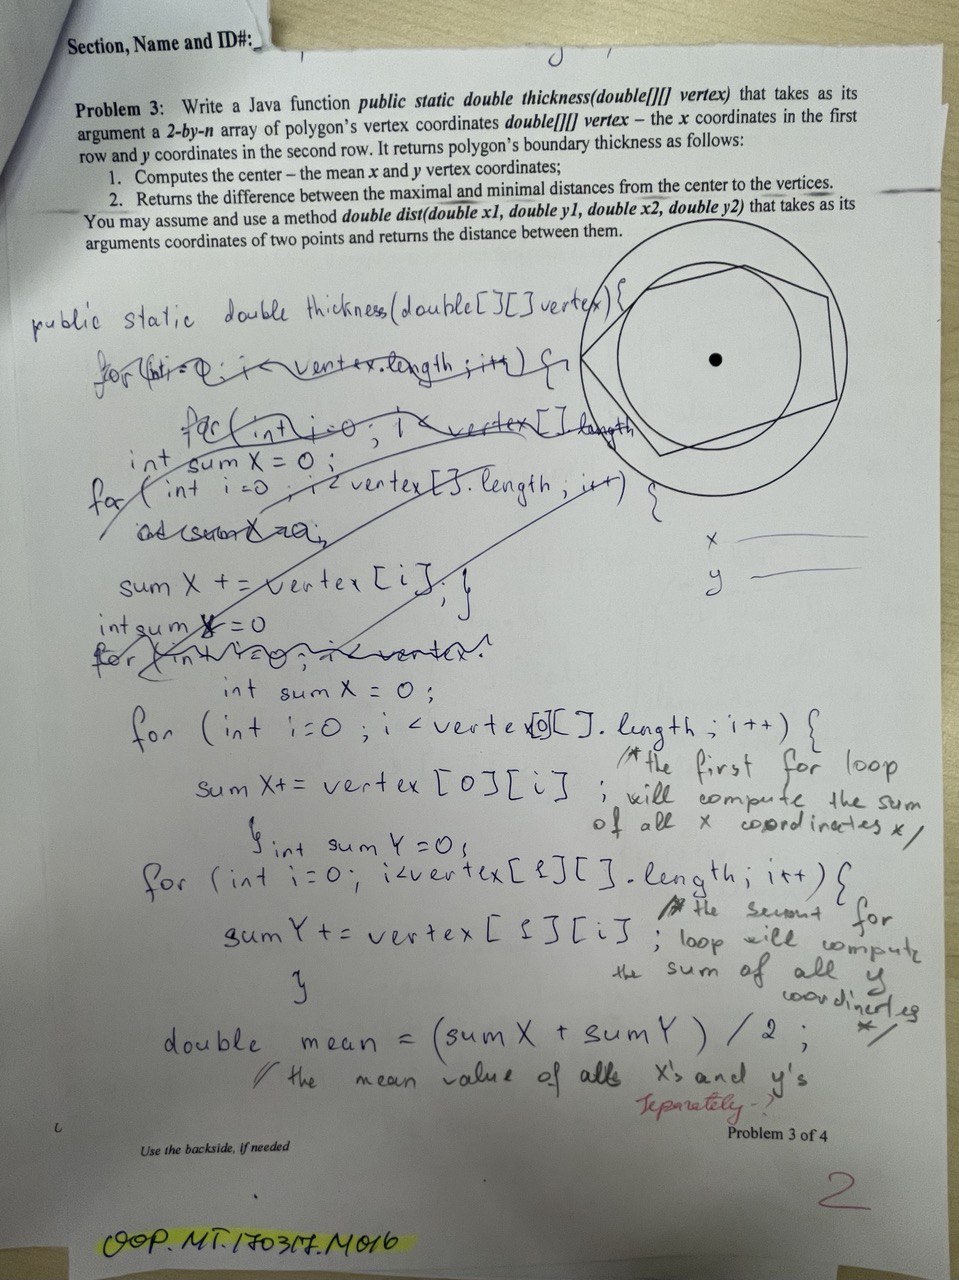 Section, Name and ID#:_
Problem 3: Write a Java function public static double thickness(double[][] vertex) that takes as its
argument a 2-by-n array of polygon's vertex coordinates double[][] vertex – the x coordinates in the first
row and y coordinates in the second row. It returns polygon's boundary thickness as follows:
1. Computes the center – the mean x and y vertex coordinates;
2. Returns the difference between the maximal and minimal distances from the center to the vertices.
You may assume and use a method double dist(double x1, double y1, double x2, double y2) that takes as its
arguments coordinates of two points and returns the distance between them.
public static double thickness(double[][] vertex){
for (int i=0; i< vertex.length ; i++) {
for (int i=0 ; i < vertex[].length
int sum X = 0 ;
for ( int i=0 ; i< vertex[].length ; i++) {
int sum X = 0;
x
y
sum X += vertex [i]; }
int sum Y = 0
for (int i=0; i<vertex.
int sum X = 0 ;
for ( int i=0 ; i < vertex[0][]. length ; i++) {
/* the first for loop
sum X+= vertex [0][i] ; will compute the sum
of all x coordinates */
} int sum Y = 0;
for (int i=0; i<vertex[1][].length; i++) {
/* the second for
sum Y += vertex [1][i] ; loop will compute
the sum of all y
} coordinates
*/
double mean = (sum X + sum Y ) / 2 ;
// the mean value of all x's and y's
separately - ?
Problem 3 of 4
Use the backside, if needed
2
OOP.MT.170317.M016